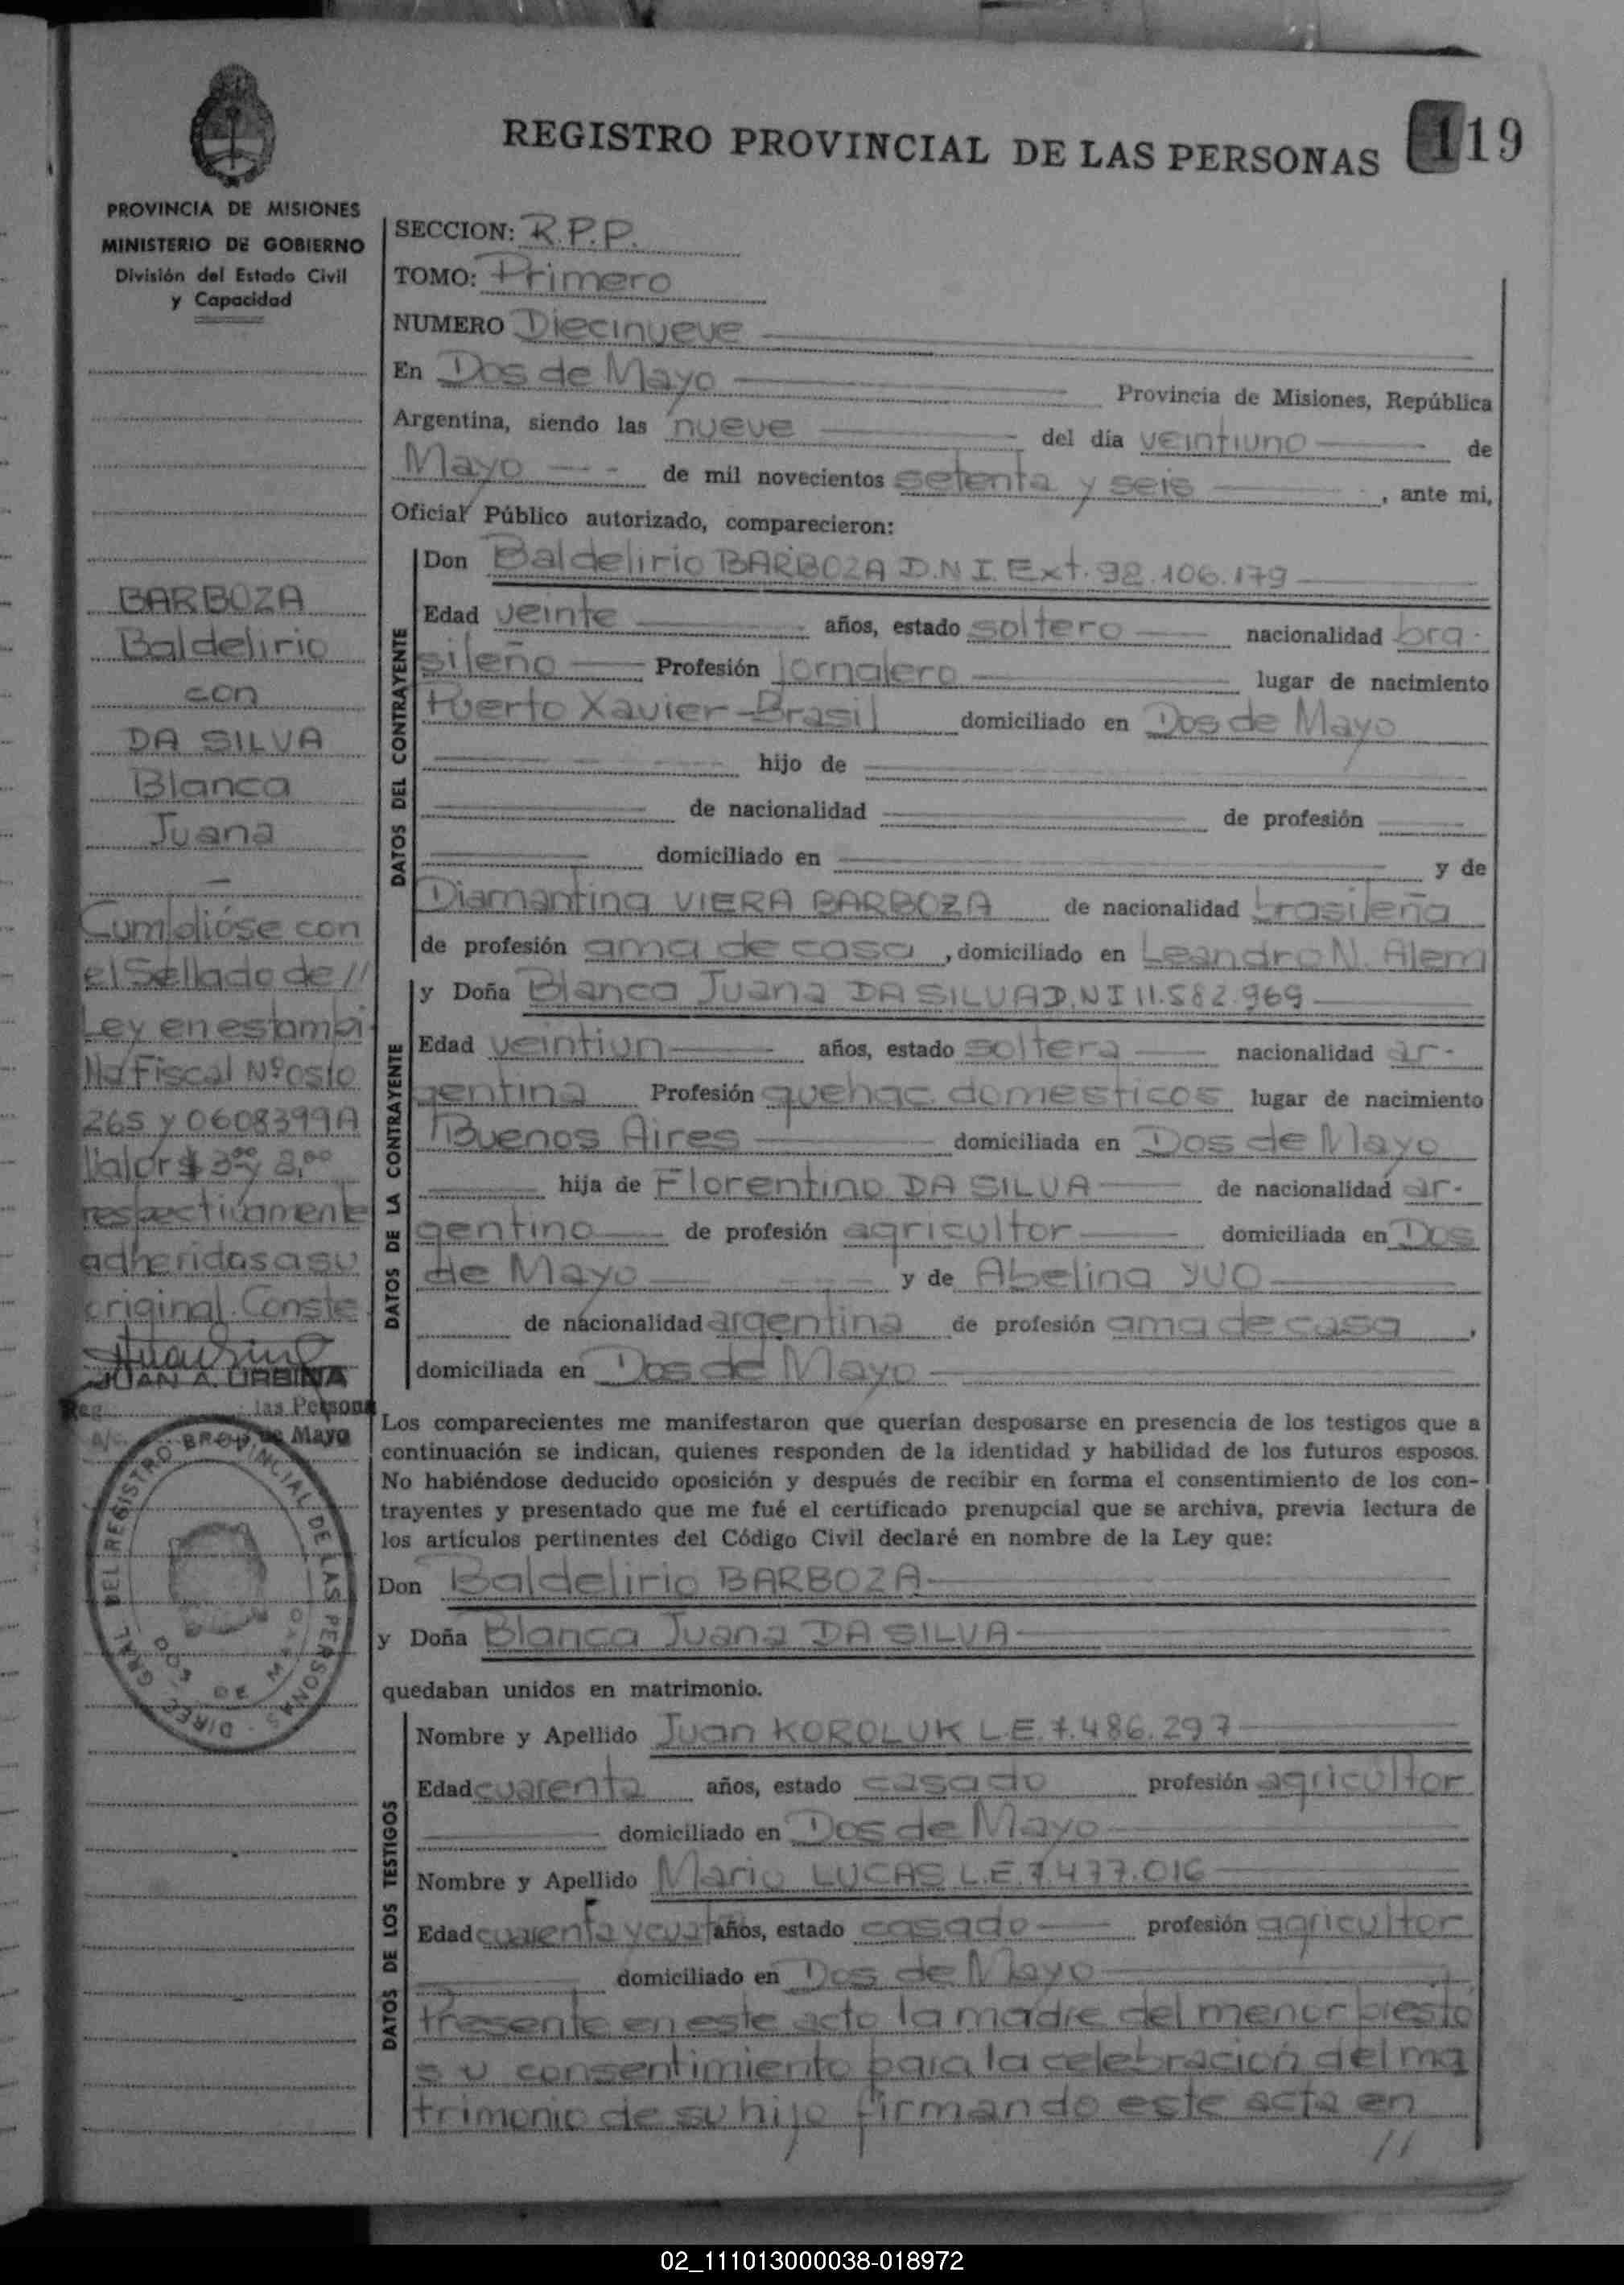 REGISTRO PROVINCIAL DE LAS PERSONAS 119
PROVINCIA DE MISIONES
MINISTERIO DE GOBIERNO
División del Estado Civil
y Capacidad
SECCION: R.P.P.
TOMO: Primero
NUMERO Diecinueve
En Dos de Mayo Provincia de Misiones, República
Argentina, siendo las nueve del día veintiuno de
Mayo de mil novecientos setenta y seis, ante mi,
Oficial Público autorizado, comparecieron:
BARBOZA
Baldelirio
con
DA SILVA
Blanca
Juana
Cumplióse con
el Sellado de //
Ley en estampi
lla Fiscal Nº 0510
265 y 0608399A
Valor $ 3,00 y 2,00
respectivamente
adheridas a su
original. Conste
JUAN A. URBINA
Reg. las Persona
a/c. de Mayo
DIREC. GRAL. DEL REGISTRO PROVINCIAL DE LAS PERSONAS
DOS DE MAYO
DATOS DEL CONTRAYENTE
Don Baldelirio BARBOZA D.N.I. Ext. 92.106.179
Edad veinte años, estado soltero nacionalidad bra-
sileño Profesión jornalero lugar de nacimiento
Puerto Xavier-Brasil domiciliado en Dos de Mayo
hijo de
de nacionalidad de profesión
domiciliado en y de
Diamantina VIERA BARBOZA de nacionalidad brasileña
de profesión ama de casa, domiciliado en Leandro N. Alem
DATOS DE LA CONTRAYENTE
y Doña Blanca Juana DA SILVA D.N.I 11.582.969
Edad veintiun años, estado soltera nacionalidad ar-
gentina Profesión quehac. domesticos lugar de nacimiento
Buenos Aires domiciliada en Dos de Mayo
hija de Florentino DA SILVA de nacionalidad ar-
gentino de profesión agricultor domiciliada en Dos
de Mayo y de Abelina YUO
de nacionalidad argentina de profesión ama de casa,
domiciliada en Dos de Mayo
Los comparecientes me manifestaron que querían desposarse en presencia de los testigos que a
continuación se indican, quienes responden de la identidad y habilidad de los futuros esposos.
No habiéndose deducido oposición y después de recibir en forma el consentimiento de los con-
trayentes y presentado que me fué el certificado prenupcial que se archiva, previa lectura de
los artículos pertinentes del Código Civil declaré en nombre de la Ley que:
Don Baldelirio BARBOZA
y Doña Blanca Juana DA SILVA
quedaban unidos en matrimonio.
DATOS DE LOS TESTIGOS
Nombre y Apellido Juan KOROLUK L.E. 7.486.297
Edad cuarenta años, estado casado profesión agricultor
domiciliado en Dos de Mayo
Nombre y Apellido Mario LUCAS L.E. 7.477.016
Edad cuarenta y cuat años, estado casado profesión agricultor
domiciliado en Dos de Mayo
Presente en este acto la madre del menor presto
su consentimiento para la celebración del ma
trimonio de su hijo firmando este acta en
//
02_111013000038-018972